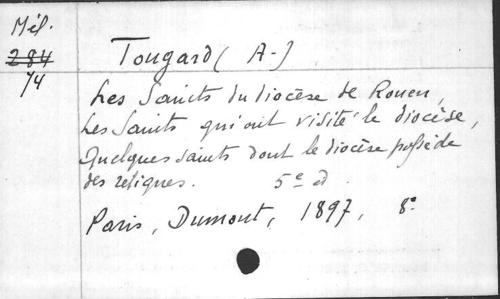 Mél.
284
74
Tougard (A-)
Les Saints du diocèse de Rouen,
Les Saints qui ont visité le diocèse,
Quelques saints dont le diocèse possède
des reliques. 5e éd
Paris, Dumont, 1897, 8°